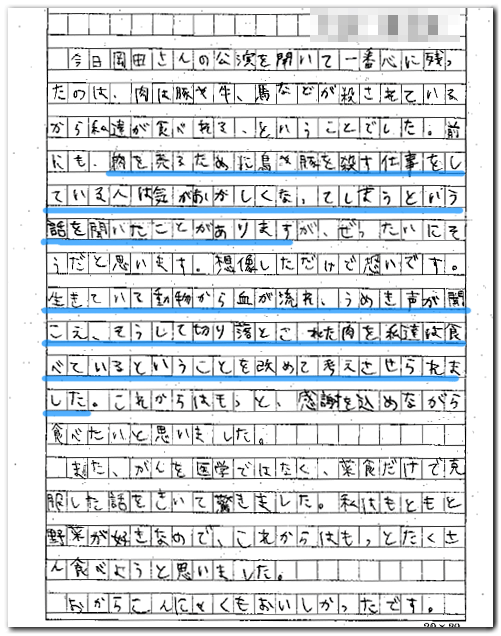 今日岡田さんの公演を聞いて一番心に残っ
たのは、肉は豚や牛、鳥などが殺されている
から私達が食べれる、ということでした。前
にも、物を売るために鳥や豚を殺す仕事をし
ている人は気がおかしくなってしまうという
話を聞いたことがありますが、ぜったいにそ
うだと思います。想像しただけで恐いです。
生きていて動物から血が流れ、うめき声が聞
こえ、そうして切り落とされた肉を私達は食
べているということを改めて考えさせられま
した。これからはもっと、感謝を込めながら
食べたいと思いました。
また、がんを医学ではなく、菜食だけで克
服した話をきいて驚きました。私はもともと
野菜が好きなので、これからはもっとたくさ
ん食べようと思いました。
おからこんにゃくもおいしかったです。
20×20